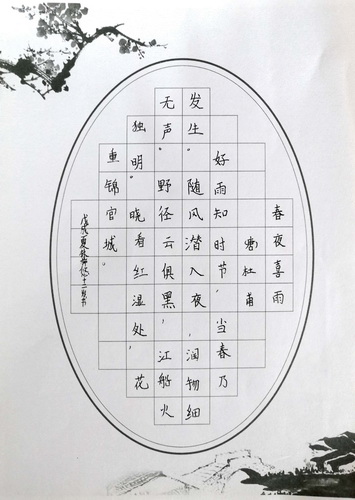 春夜喜雨
杜甫
好雨知时节，当春乃
发生。随风潜入夜，润物细
无声。野径云俱黑，江船火
独明。晓看红湿处，花
重锦官城。
戊戌夏林